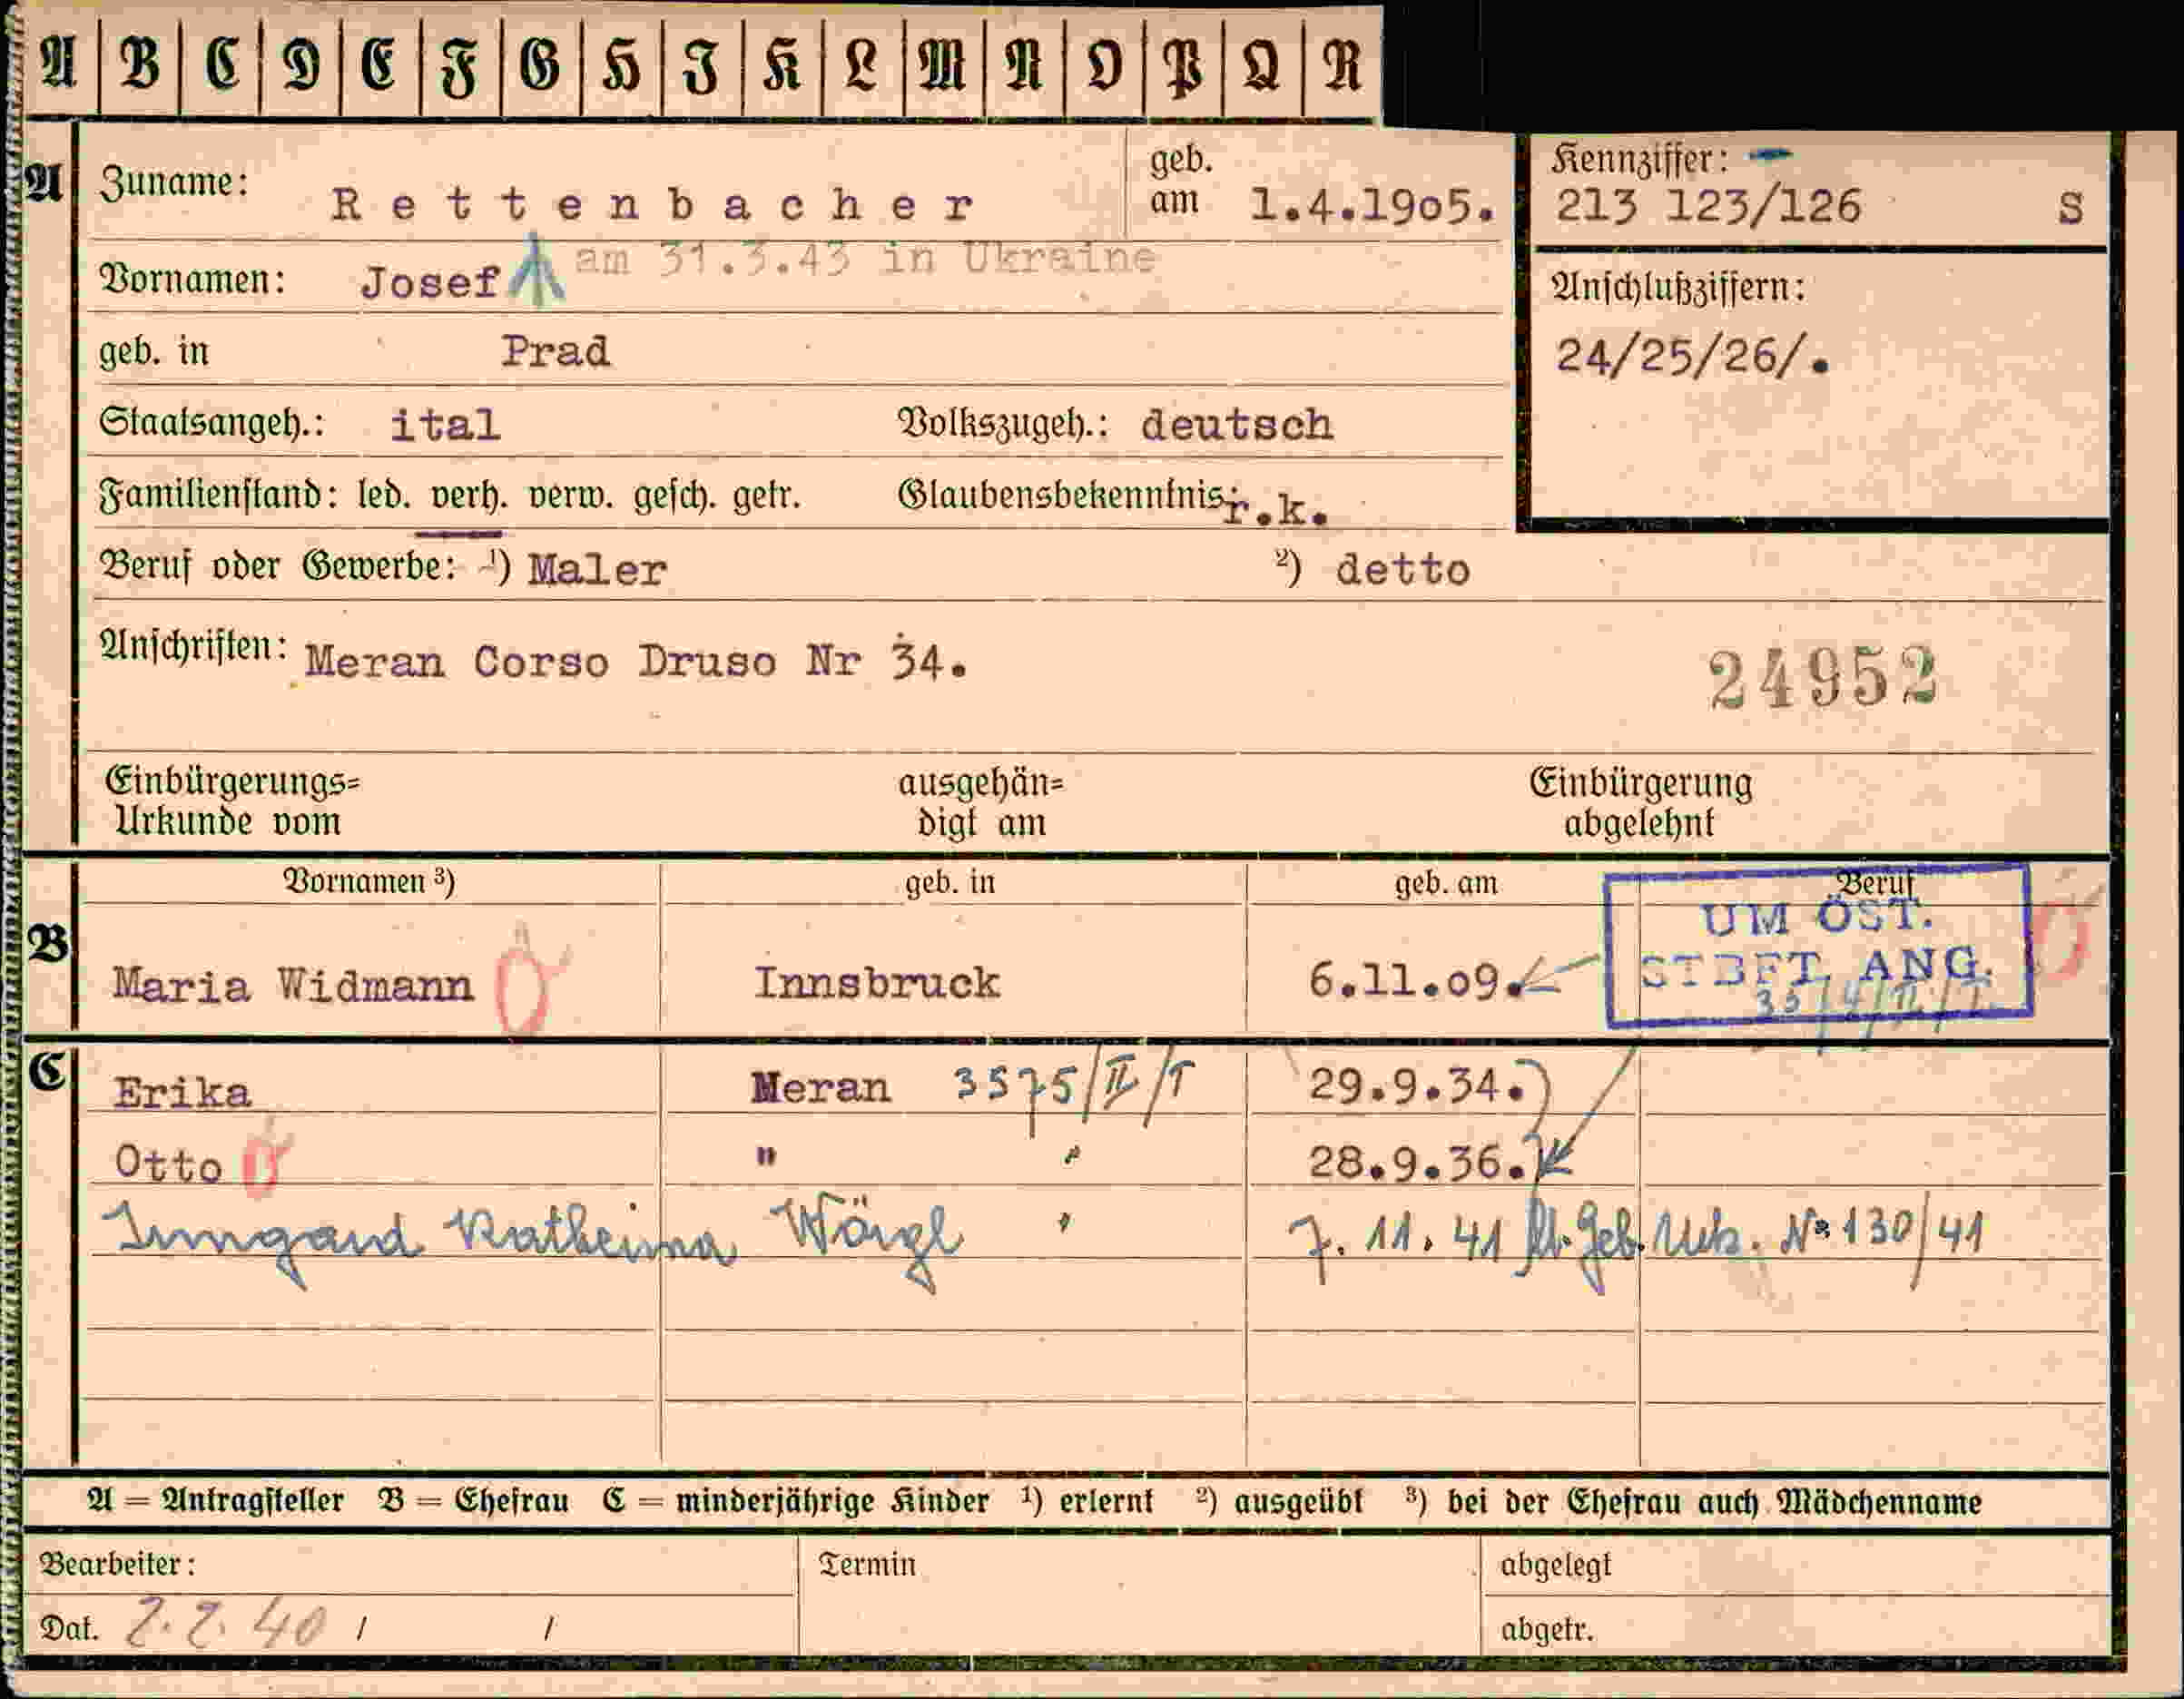 A B C D E F G H I K L M N O P Q R
A Zuname: Rettenbacher geb. am 1.4.1905. Kennziffer: 213 123/126 S
Vornamen: Josef am 31.3.43 in Ukraine Anschlußziffern:
geb. in Prad 24/25/26/.
Staatsangeh.: ital Volkszugeh.: deutsch
Familienstand: led. verh. verw. gesch. getr. Glaubensbekenntnis: r.k.
Beruf oder Gewerbe: ¹) Maler ²) detto
Anschriften: Meran Corso Druso Nr 34. 24952
Einbürgerungs= ausgehän= Einbürgerung
Urkunde vom digt am abgelehnt
Vornamen ³) geb. in geb. am Beruf
UM ÖST.
B Maria Widmann Innsbruck 6.11.09. STBFT. ANG.
C Erika Meran 3575/II/T 29.9.34.
Otto " " 28.9.36.
Irmgard Katherina Wörgl " 7.11.41 lt. Geb. Urk. No 130/41
A = Antragsteller B = Ehefrau C = minderjährige Kinder ¹) erlernt ²) ausgeübt ³) bei der Ehefrau auch Mädchenname
Bearbeiter: Termin abgelegt
Dat. 2.2.40 / / abgetr.